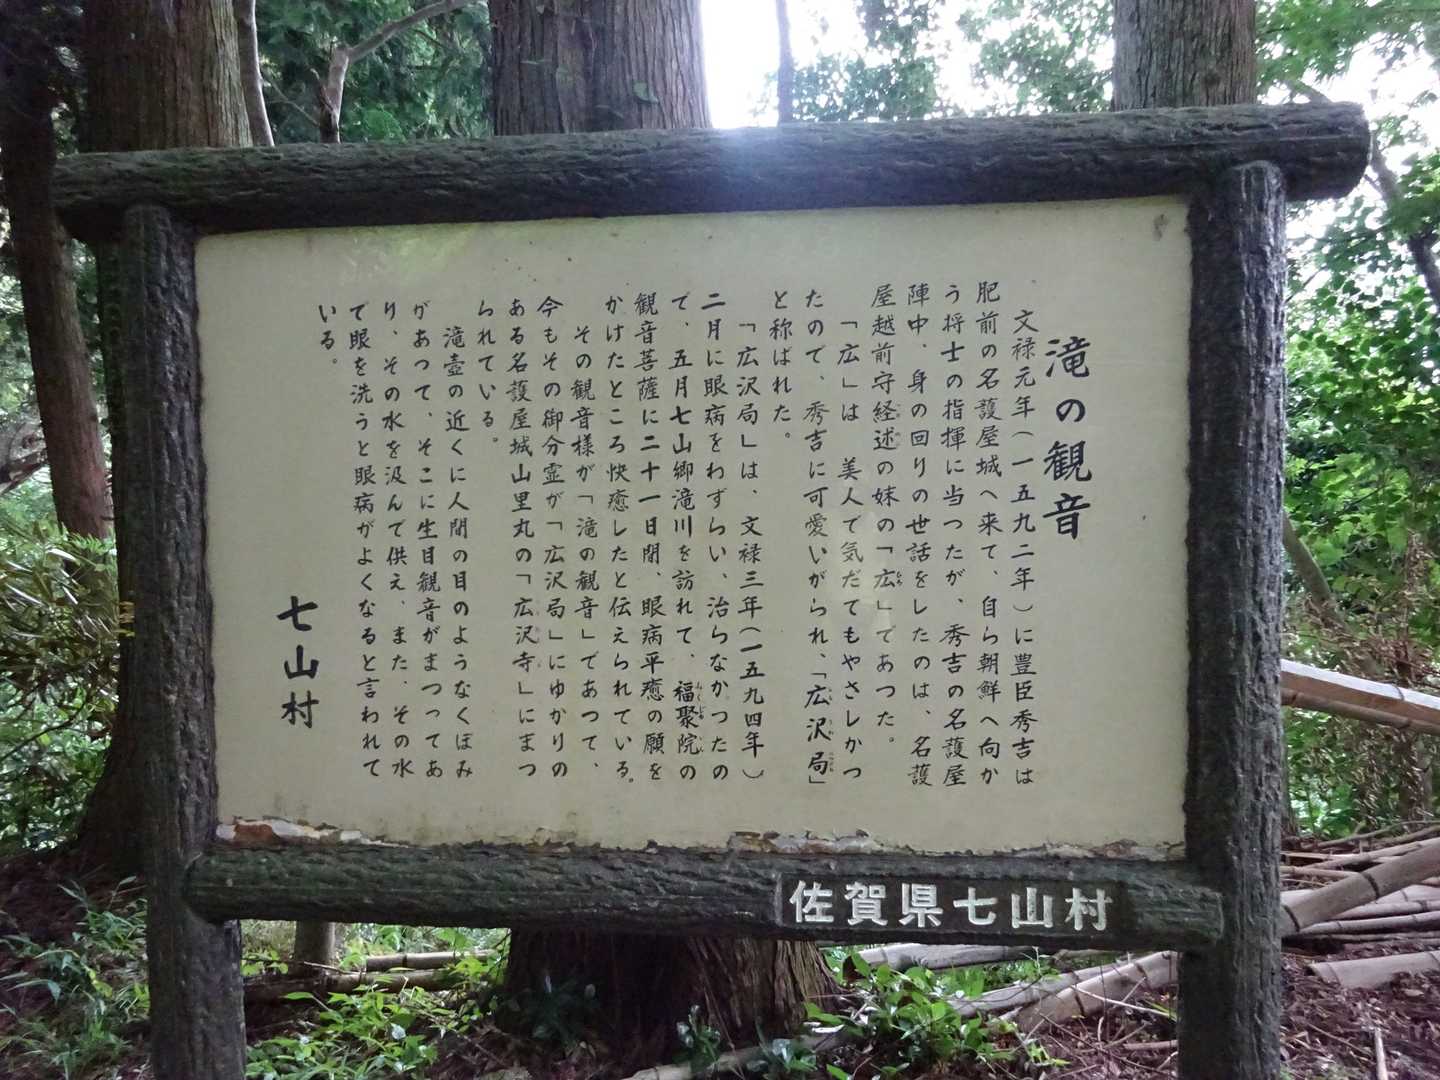 滝の観音
文禄元年(一五九二年)に豊臣秀吉は
肥前の名護屋城へ来て、自ら朝鮮へ向か
う将士の指揮に当つたが、秀吉の名護屋
陣中、身の回りの世話をしたのは、名護
屋越前守経述の妹の「広」であつた。
「広」は 美人で気だてもやさしかつ
たので、秀吉に可愛いがられ、「広沢局」
と称ばれた。
「広沢局」は、文禄三年(一五九四年)
二月に眼病をわずらい、治らなかつたの
で、五月七山郷滝川を訪れて、福聚院の
観音菩薩に二十一日間、眼病平癒の願を
かけたところ快癒したと伝えられている。
その観音様が「滝の観音」であつて、
今もその御分霊が「広沢局」にゆかりの
ある名護屋城山里丸の「広沢寺」にまつ
られている。
滝壺の近くに人間の目のようなくぼみ
があつて、そこに生目観音がまつつてあ
り、その水を汲んで供え、また、その水
で眼を洗うと眼病がよくなると言われて
いる。
七山村
佐賀県七山村